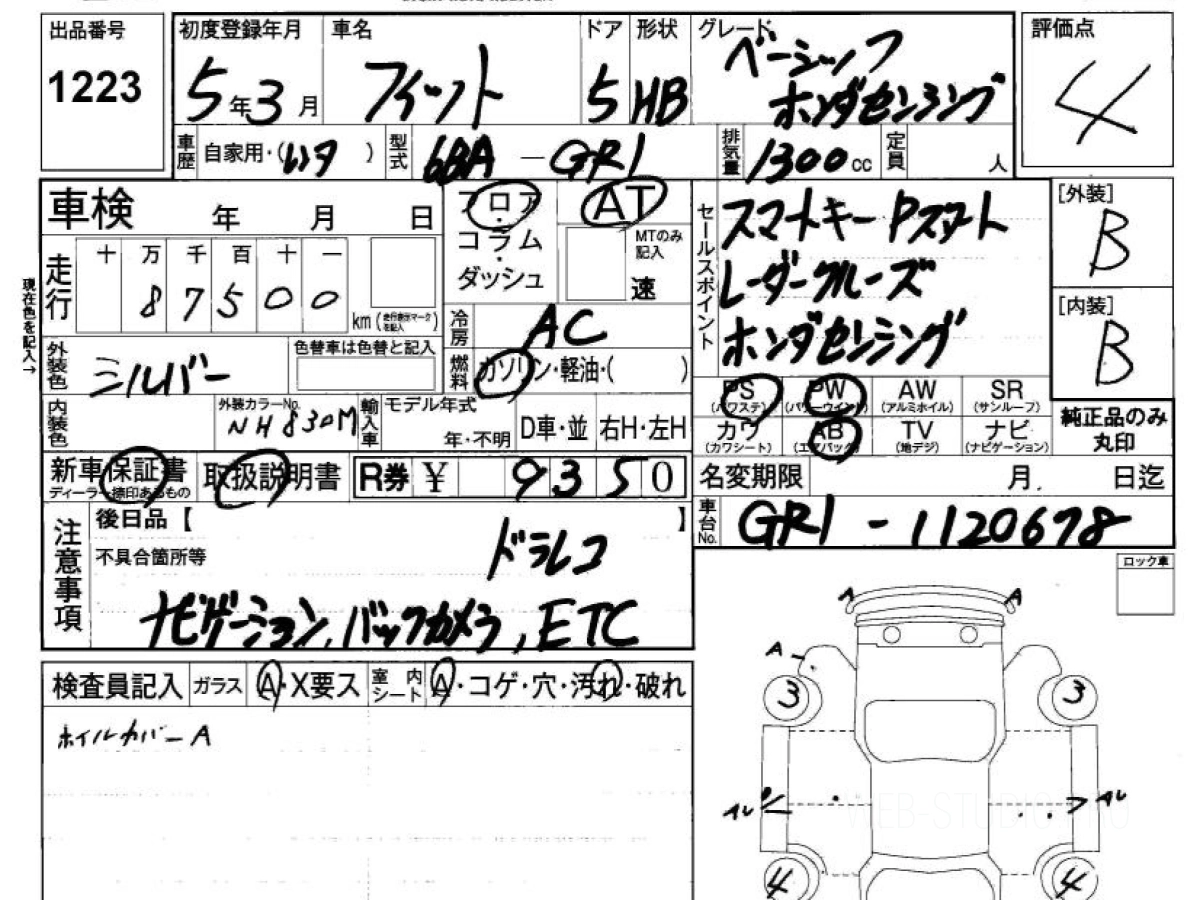 出品番号
1223
初度登録年月
5年3月
車名
フィット
ドア
5
形状
HB
グレード
ベーシック
ホンダセンシング
評価点
4
車歴
自家用・(レンタ)
型式
6BA - GR1
排気量
1300cc
定員
人
車検 年 月 日
フロア
コラム
ダッシュ
AT
MTのみ記入
速
セールスポイント
スマートキー Pスタート
レーダークルーズ
ホンダセンシング
[外装]
B
[内装]
B
現在色を記入→
走行
十万千百十一
87500
km(走行表示マークを記入)
冷房
AC
外装色
シルバー
色替車は色替と記入
燃料
ガソリン・軽油・( )
PS
(パワステ)
PW
(パワーウインド)
AW
(アルミホイル)
SR
(サンルーフ)
カワ
(カワシート)
AB
(エアバック)
TV
(地デジ)
ナビ
(ナビゲーション)
純正品のみ
丸印
内装色
外装カラーNo.
NH830M
輸入車
モデル年式
年・不明
D車・並
右H・左H
新車保証書
ディーラー捺印あるもの
取扱説明書
R券 ¥ 9350
名変期限 月 日迄
注意事項
後日品【 】
不具合箇所等
ドラレコ
ナビゲーション, バックカメラ, ETC
車台No.
GR1 - 1120678
ロック車
検査員記入
ガラス
A・X要ス
室内シート
A・コゲ・穴・汚れ・破れ
ホイルカバーA
A
A
A
3
3
AU
AU
WEB-STUDIO.PRO
4
4